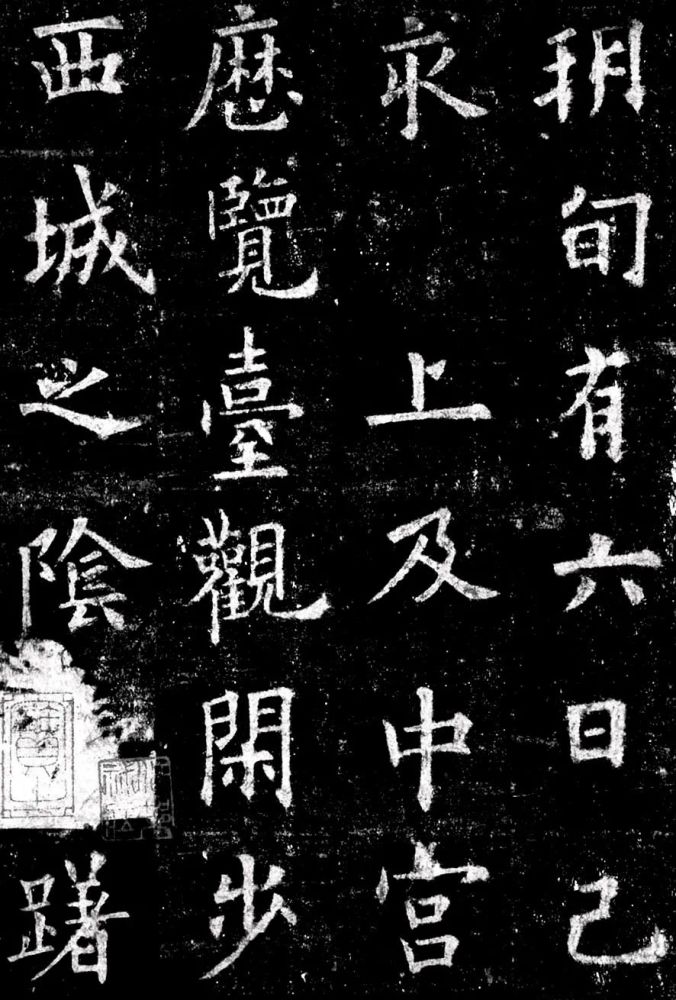 朔旬有六日己
亥 上及中宮
歷覽臺觀閑步
西城之陰躇